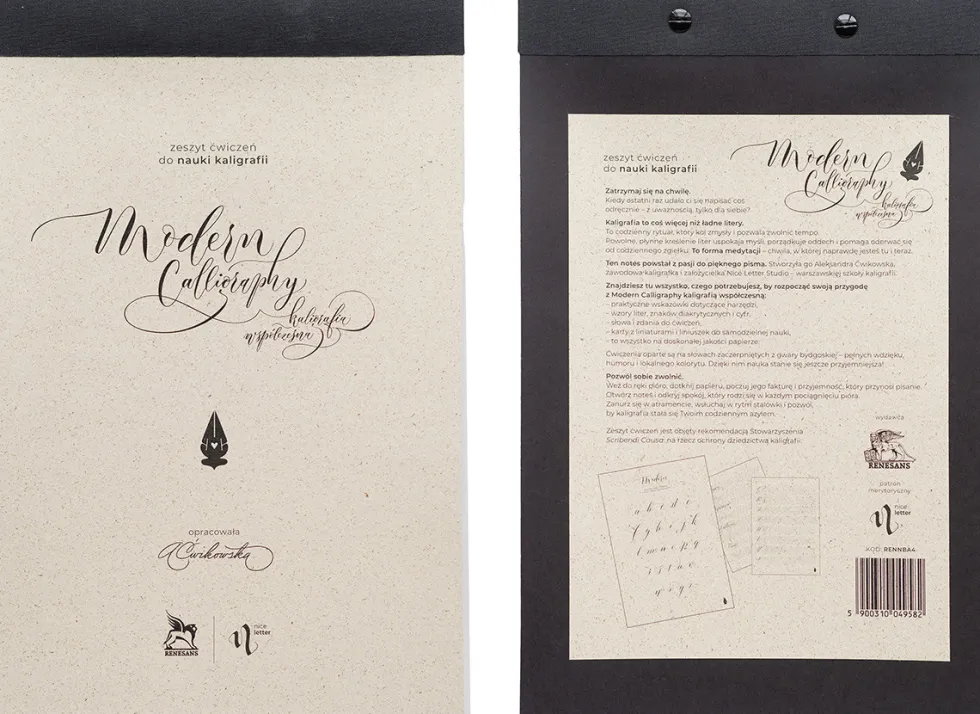 zeszyt ćwiczeń
do nauki kaligrafii
Modern
Calligraphy
kaligrafia
współczesna
opracowała
ACwikowska
RENESANS
nice
letter
zeszyt ćwiczeń
do nauki kaligrafii
Modern
Calligraphy
kaligrafia
współczesna
Zatrzymaj się na chwilę.
Kiedy ostatni raz udało ci się napisać coś
odręcznie – z uważnością, tylko dla siebie?
Kaligrafia to coś więcej niż ładne litery.
To codzienny rytuał, który koi zmysły i pozwala zwolnić tempo
Powolne, płynne kreślenie liter uspokaja myśli, porządkuje oddech i pomaga oderwać się
od codziennego zgiełku. To forma medytacji – chwila, w której naprawdę jesteś tu i teraz.
Ten notes powstał z pasji do pięknego pisma. Stworzyła go Aleksandra Ćwikowska,
zawodowa kaligrafka i założycielka Nice Letter Studio – warszawskiej szkoły kaligrafii.
Znajdziesz tu wszystko, czego potrzebujesz, by rozpocząć swoją przygodę
z Modern Calligraphy kaligrafią współczesną:
- praktyczne wskazówki dotyczące narzędzi,
- wzory liter, znaków diakrytycznych i cyfr,
- słowa i zdania do ćwiczeń,
- karty z liniaturami i liniuszek do samodzielnej nauki,
- to wszystko na doskonałej jakości papierze.
Ćwiczenia oparte są na słowach zaczerpniętych z gwary bydgoskiej – pełnych wdzięku,
humoru i lokalnego kolorytu. Dzięki nim nauka stanie się jeszcze przyjemniejsza!
Pozwól sobie zwolnić.
Weź do ręki pióro, dotknij papieru, poczuj jego fakturę i przyjemność, który przynosi pisanie.
Otwórz notes i odkryj spokój, który rodzi się w każdym pociągnięciu pióra.
Zanurz się w atramencie, wsłuchaj w rytm stalówki i pozwól,
by kaligrafia stała się Twoim codziennym azylem.
Zeszyt ćwiczeń jest objęty rekomendacją Stowarzyszenia
Scribendi Causa, na rzecz ochrony dziedzictwa kaligrafii.
wydawca
RENESANS
patron
merytoryczny
nice
letter
KOD: RENNBA4
5 900310 049582
Modern